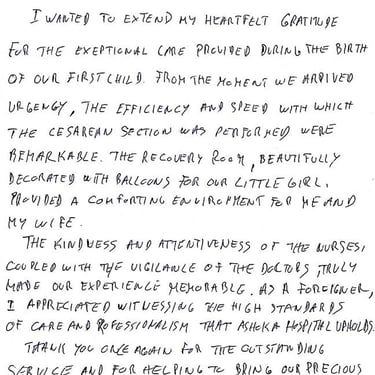 I WANTED TO EXTEND MY HEARTFELT GRATITUDE
FOR THE EXEPTIONAL CARE PROVIDED DURING THE BIRTH
OF OUR FIRST CHILD. FROM THE MOMENT WE ARRIVED
URGENCY, THE EFFICIENCY AND SPEED WITH WHICH
THE CESAREAN SECTION WAS PERFORMED WERE
REMARKABLE. THE RECOVERY ROOM, BEAUTIFULLY
DECORATED WITH BALLOONS FOR OUR LITTLE GIRL,
PROVIDED A COMFORTING ENVIRONMENT FOR ME AND
MY WIFE.
THE KINDNESS AND ATTENTIVENESS OF THE NURSES,
COUPLED WITH THE VIGILANCE OF THE DOCTORS, TRULY
MADE OUR EXPERIENCE MEMORABLE. AS A FOREIGNER,
I APPRECIATED WITNESSING THE HIGH STANDARDS
OF CARE AND PROFESSIONALISM THAT ASHOKA HOSPITAL UPHOLDS.
THANK YOU ONCE AGAIN FOR THE OUTSTANDING
SERVICE AND FOR HELPING TO BRING OUR PRECIOUS